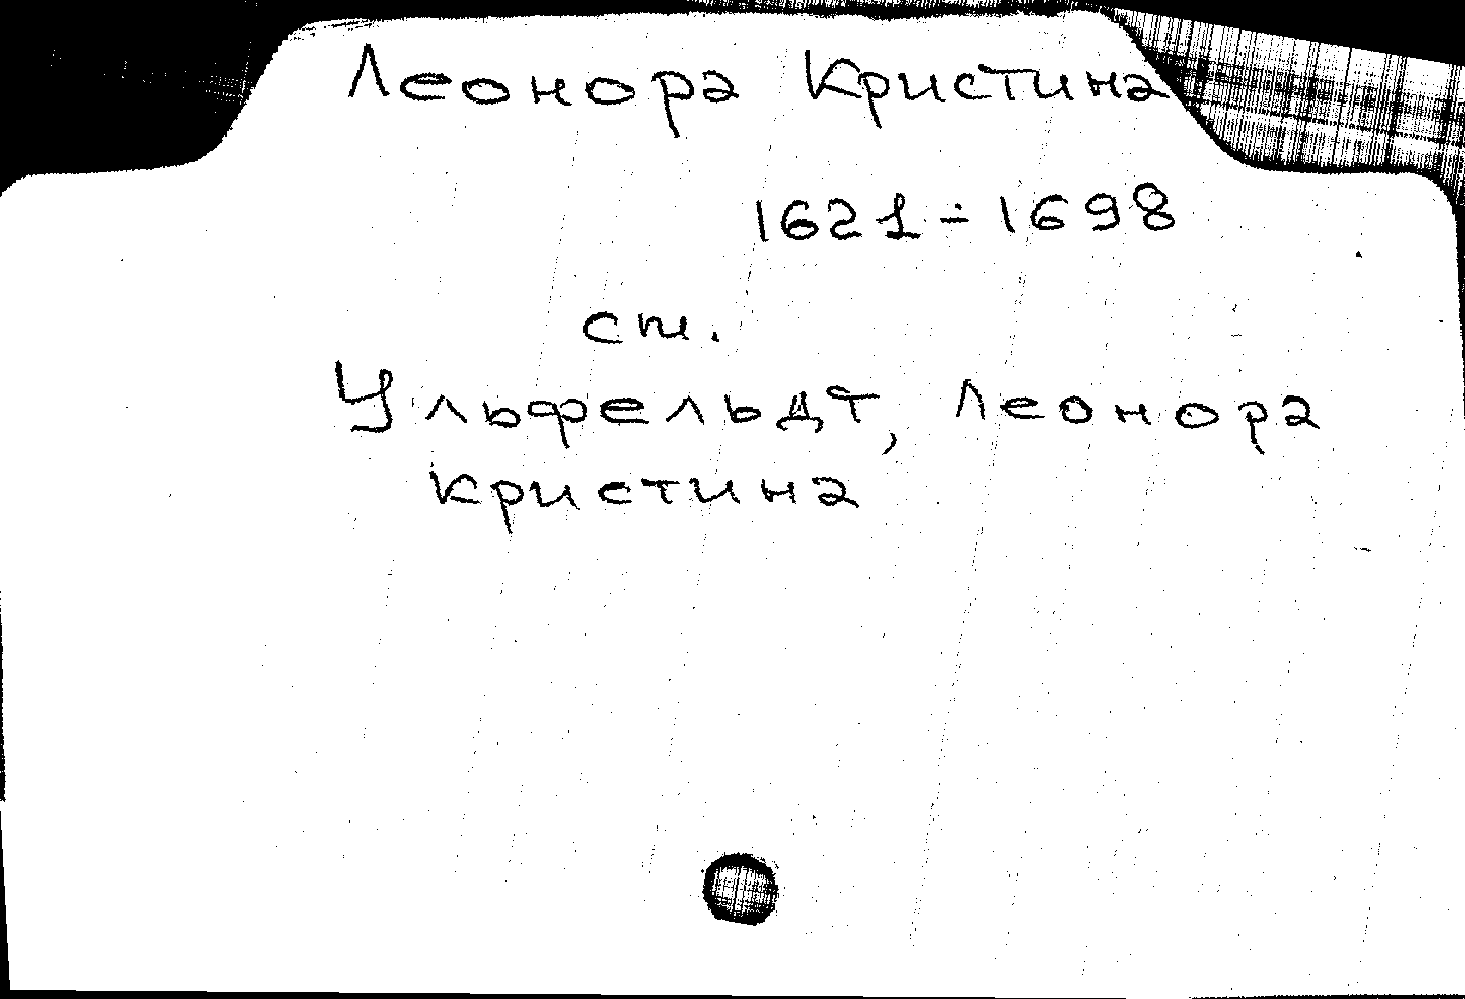 Леонора Кристина
1621-1698
см.
Ульфельдт, Леонора
Кристина